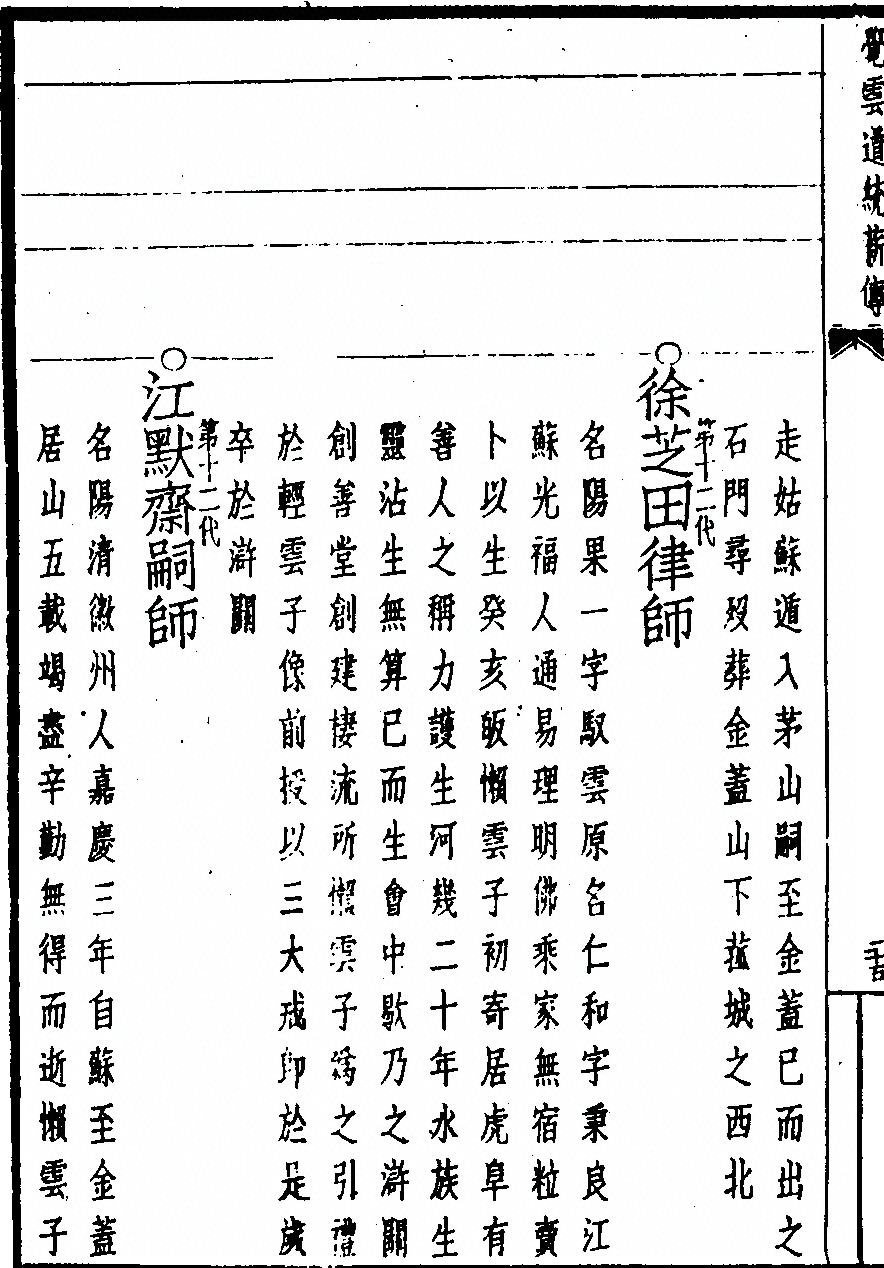 覺雲道統薪傳
走姑蘇遁入茅山嗣至金蓋已而出之
石門尋歿葬金蓋山下菰城之西北
徐芝田律師
第十二代
名陽果一字馭雲原名仁和字秉良江
蘇光福人通易理明佛乘家無宿粒賣
卜以生癸亥皈懶雲子初寄居虎阜有
善人之稱力護生河幾二十年水族生
靈沾生無算已而生會中歇乃之滸關
創善堂創建棲流所懶雲子為之引禮
於輕雲子像前授以三大戒即於是歲
卒於滸關
江默齋嗣師
第十二代
名陽清徽州人嘉慶三年自蘇至金蓋
居山五載竭盡辛勤無得而逝懶雲子